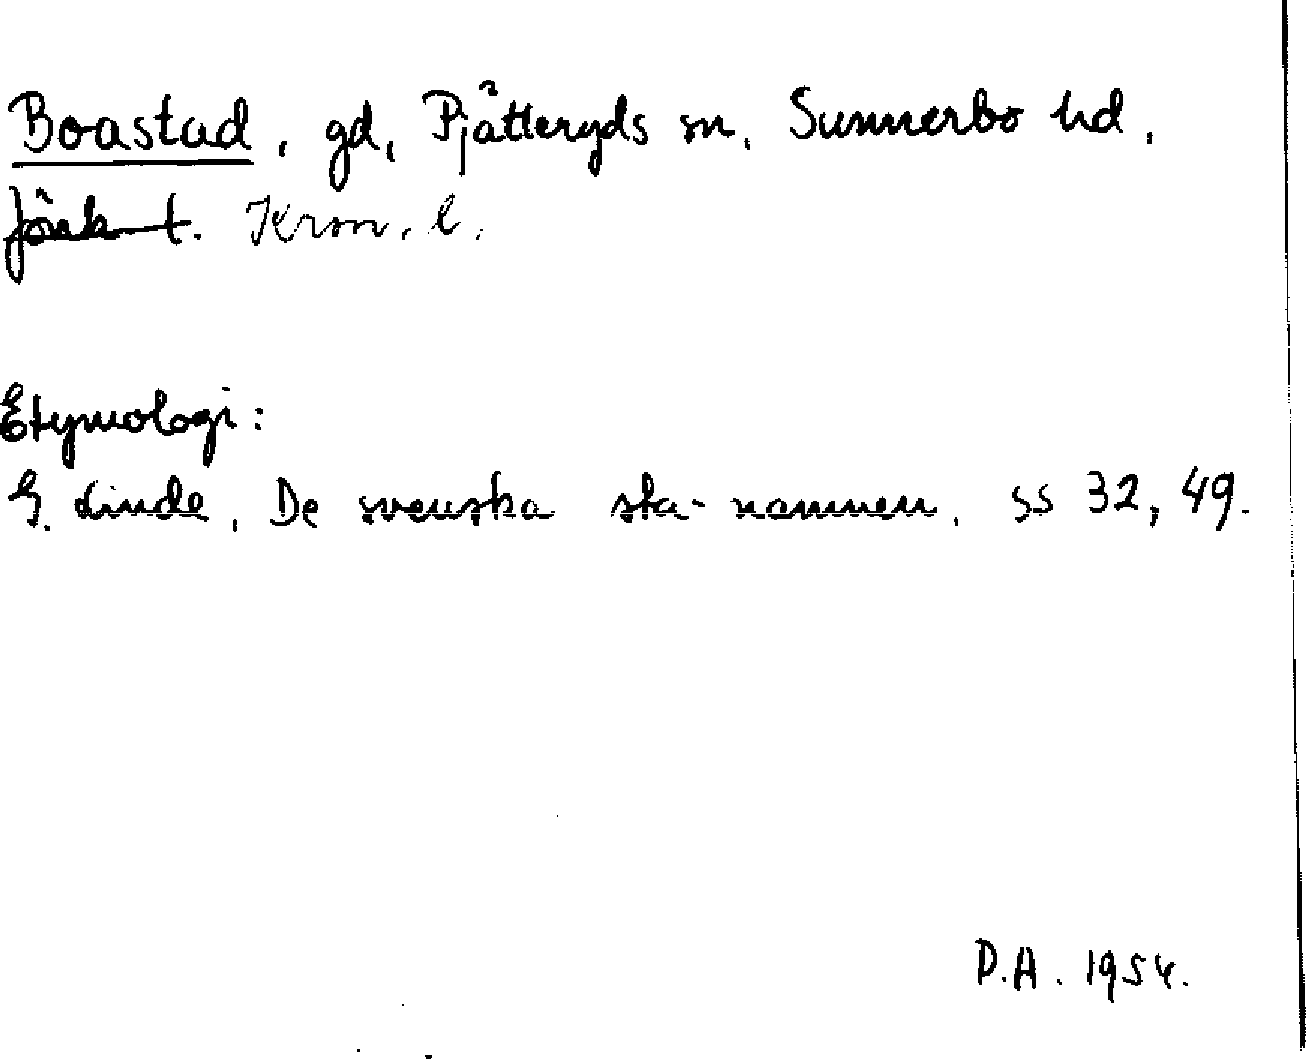 Boastad, gd, Pjätteryds sn, Sunnerbo hd,
Jönk. l. Kron. l.
Etymologi:
G. Linde, De svenska sta-namnen, ss 32, 49.
D.A. 1954.